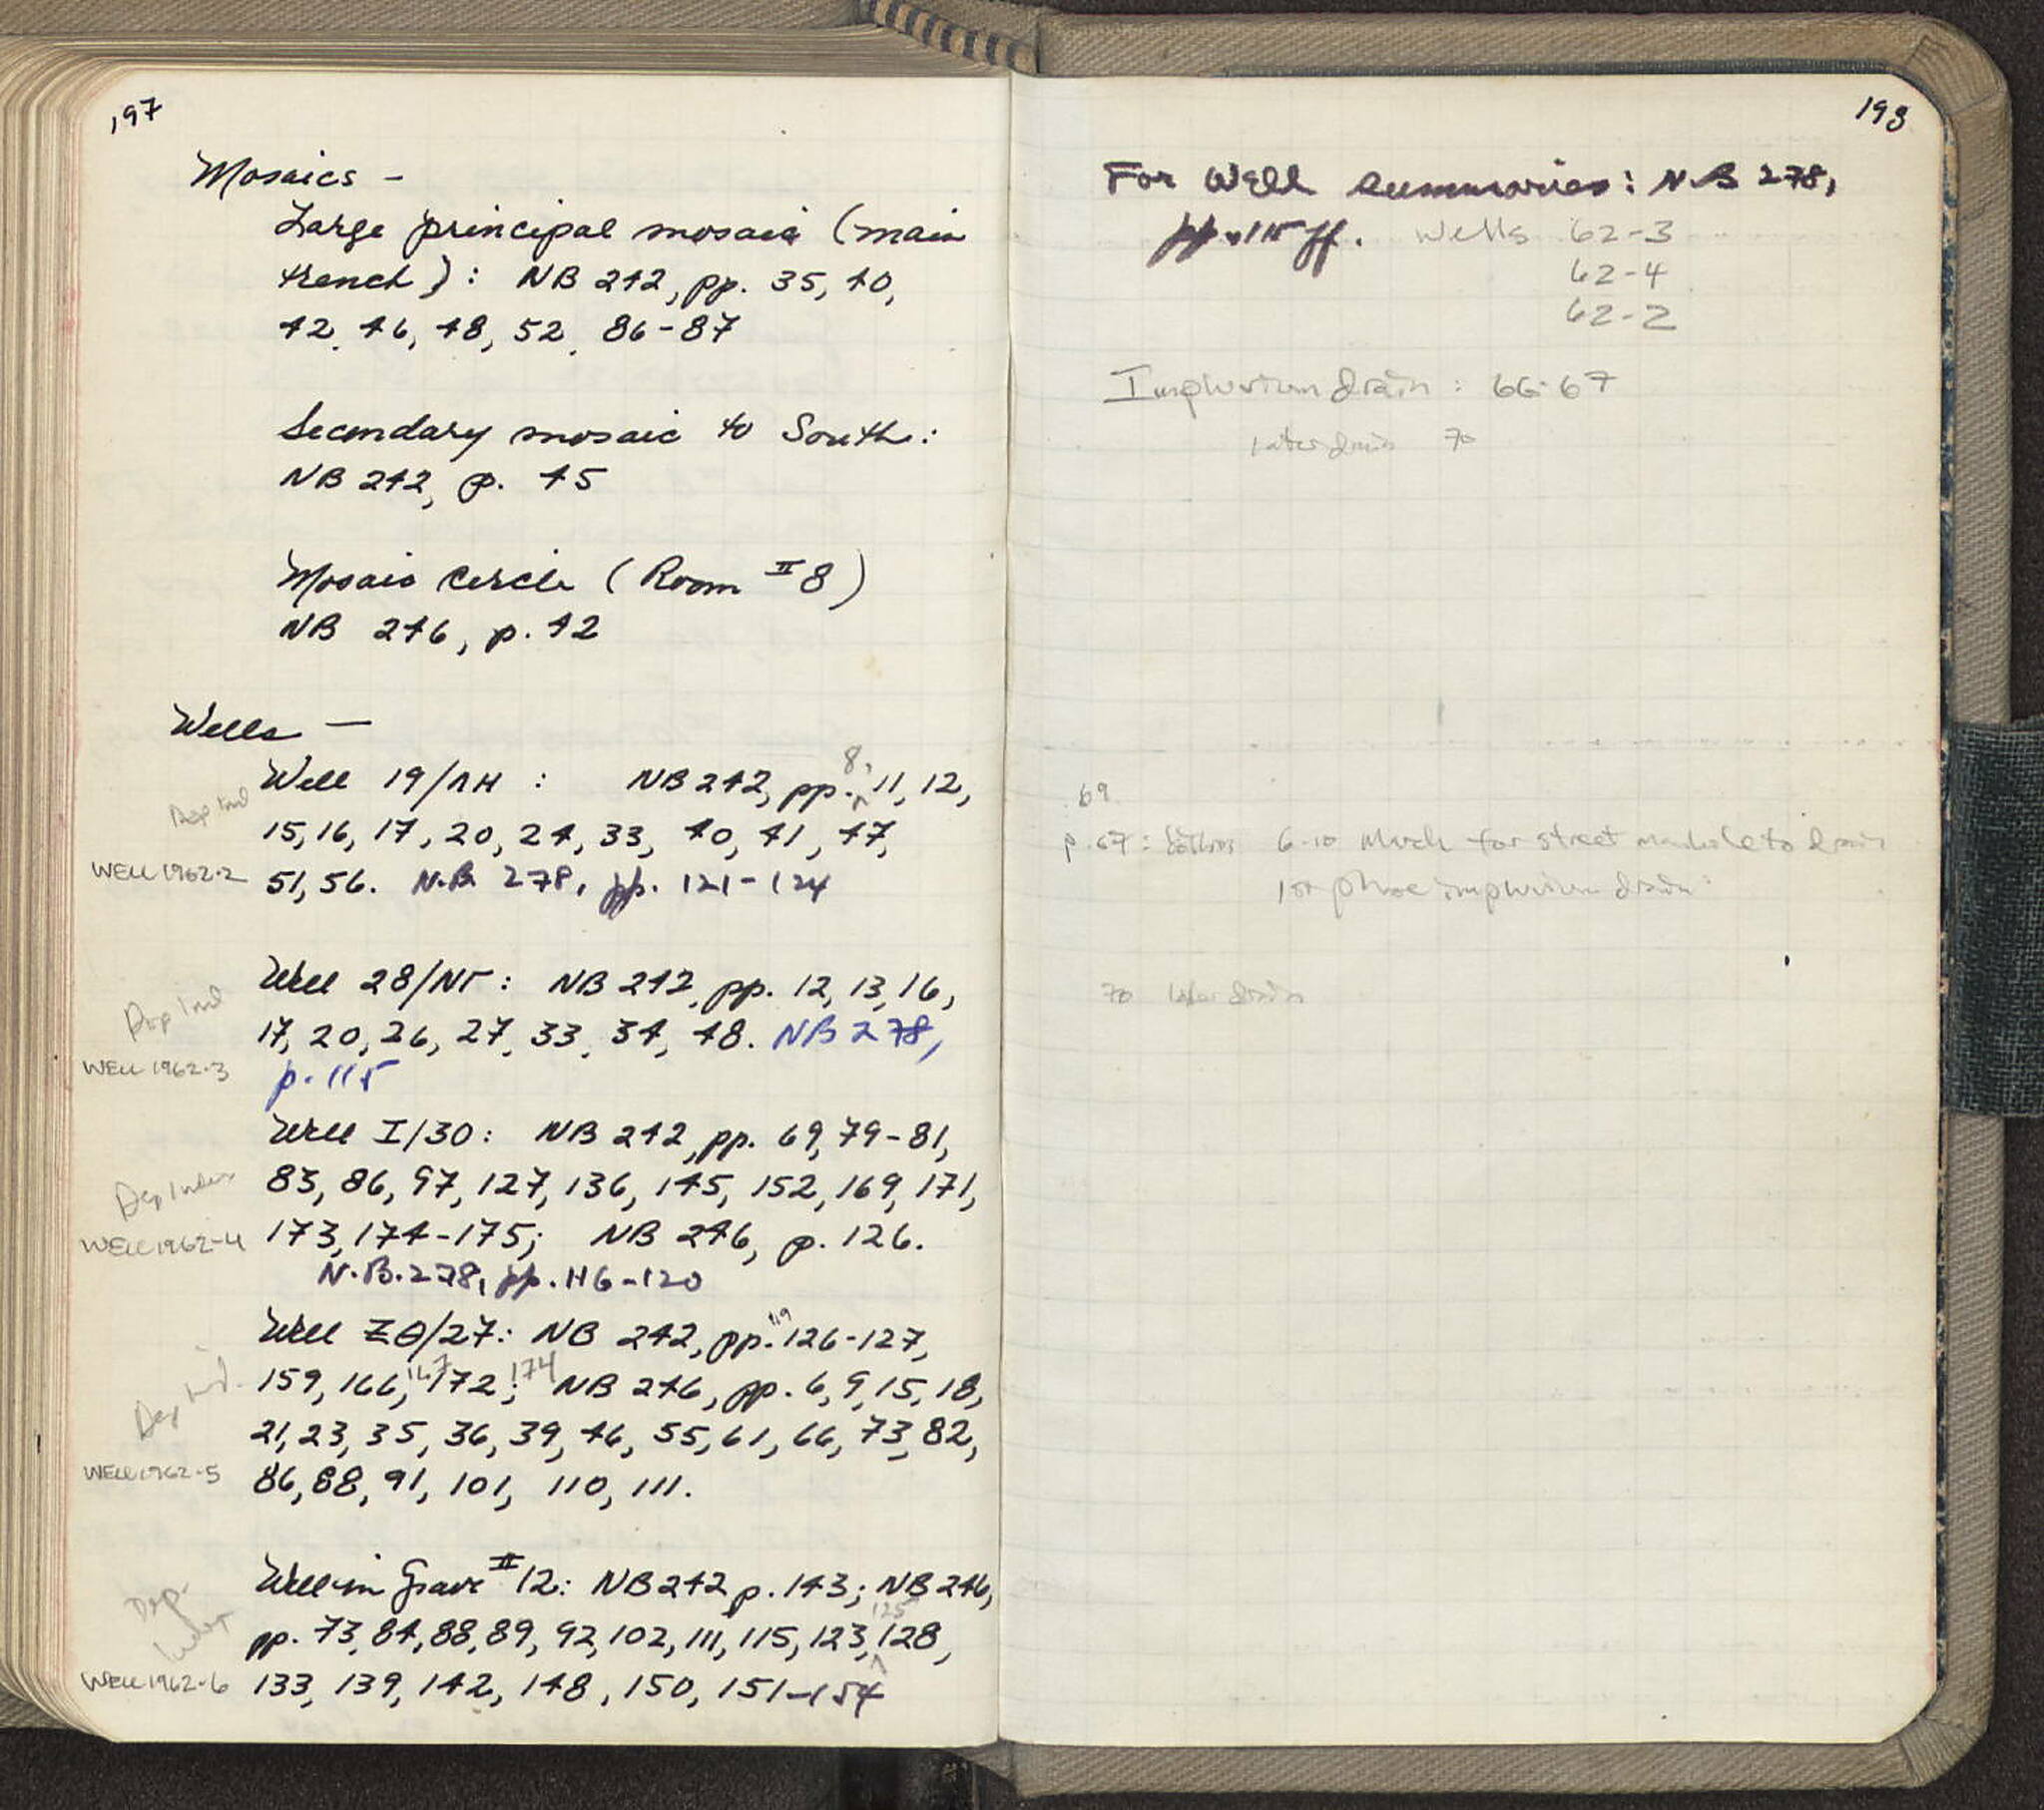 197
Mosaics -
Large principal mosaic (main
trench): NB 242, pp. 35, 40,
42, 46, 48, 52, 86-87
Secondary mosaic to South:
NB 242, p. 45
Mosaic Circle (Room #8)
NB 246, p. 42
Wells —
8,
Well 19/ΛH : NB 242, pp. 11, 12,
Dep Ind
15, 16, 17, 20, 24, 33, 40, 41, 47,
WELL 1962-2
51, 56. N.B. 278, pp. 121-124
Well 28/NΓ: NB 242, pp. 12, 13, 16,
Dep Ind
17, 20, 26, 27, 33, 34, 48. NB 278,
WELL 1962-3
p. 115
Well I/30: NB 242, pp. 69, 79-81,
Dep Index
83, 86, 97, 127, 136, 145, 152, 169, 171,
WELL 1962-4
173, 174-175; NB 246, p. 126.
N.B. 278, pp. 116-120
119
Well ZΘ/27: NB 242, pp. 126-127,
Dep Ind.
159, 166, 167 172; 174 NB 246, pp. 6, 9, 15, 18,
21, 23, 35, 36, 39, 46, 55, 61, 66, 73, 82,
WELL 1962-5
86, 88, 91, 101, 110, 111.
Well in Grave #12: NB 242 p. 143; NB 246,
Dep. Index
125
pp. 73, 84, 88, 89, 92, 102, 111, 115, 123, 128,
WELL 1962-6
133, 139, 142, 148, 150, 151-154
198
For Well summaries: N.B 278,
pp. 115 ff. Wells 62-3
62-4
62-2
Impluvium drain: 66-67
later drain 70
69
p. 67: bottom 6-10 March for street manhole to drain
1st phase impluvium drain
70 later drain